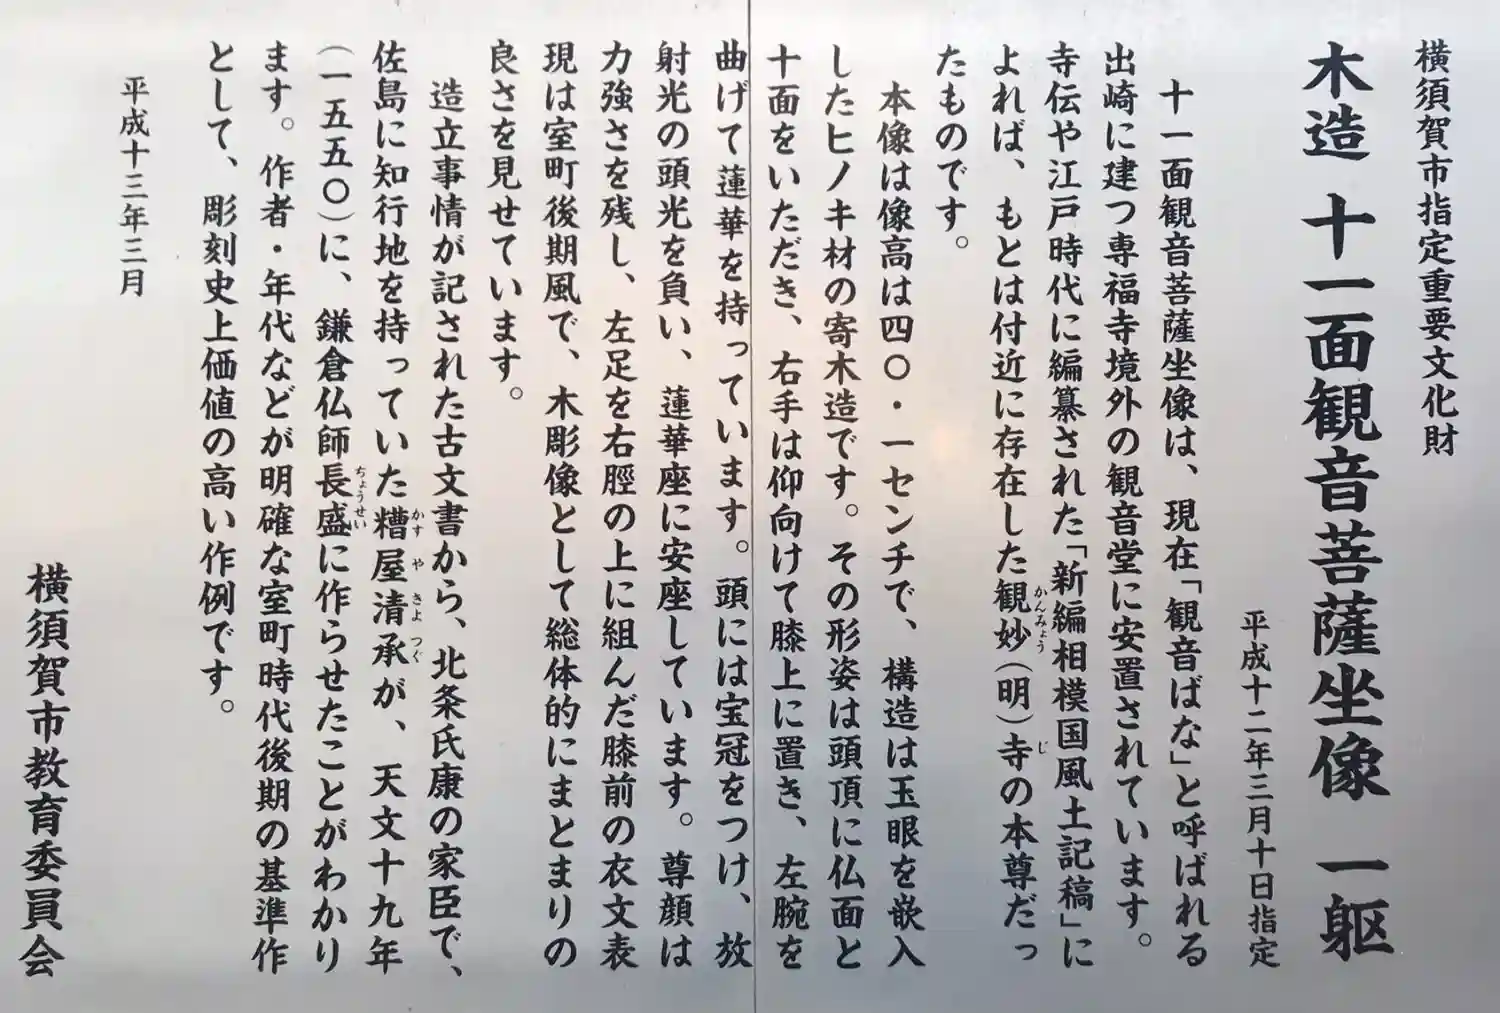 横須賀市指定重要文化財
木造 十一面観音菩薩坐像 一躯
平成十二年三月十日指定
十一面観音菩薩坐像は、現在「観音ばな」と呼ばれる
出崎に建つ専福寺境外の観音堂に安置されています。
寺伝や江戸時代に編纂された「新編相模国風土記稿」に
よれば、もとは付近に存在した観妙(明)寺の本尊だっ
かんみょう
じ
たものです。
本像は像高は四〇・一センチで、構造は玉眼を嵌入
したヒノキ材の寄木造です。その形姿は頭頂に仏面と
十面をいただき、右手は仰向けて膝上に置き、左腕を
曲げて蓮華を持っています。頭には宝冠をつけ、放
射光の頭光を負い、蓮華座に安座しています。尊顔は
力強さを残し、左足を右脛の上に組んだ膝前の衣文表
現は室町後期風で、木彫像として総体的にまとまりの
良さを見せています。
造立事情が記された古文書から、北条氏康の家臣で、
佐島に知行地を持っていた糟屋清承が、天文十九年
かすや きよつぐ
(一五五〇)に、鎌倉仏師長盛に作らせたことがわかり
ちょうせい
ます。作者・年代などが明確な室町時代後期の基準作
として、彫刻史上価値の高い作例です。
平成十三年三月
横須賀市教育委員会